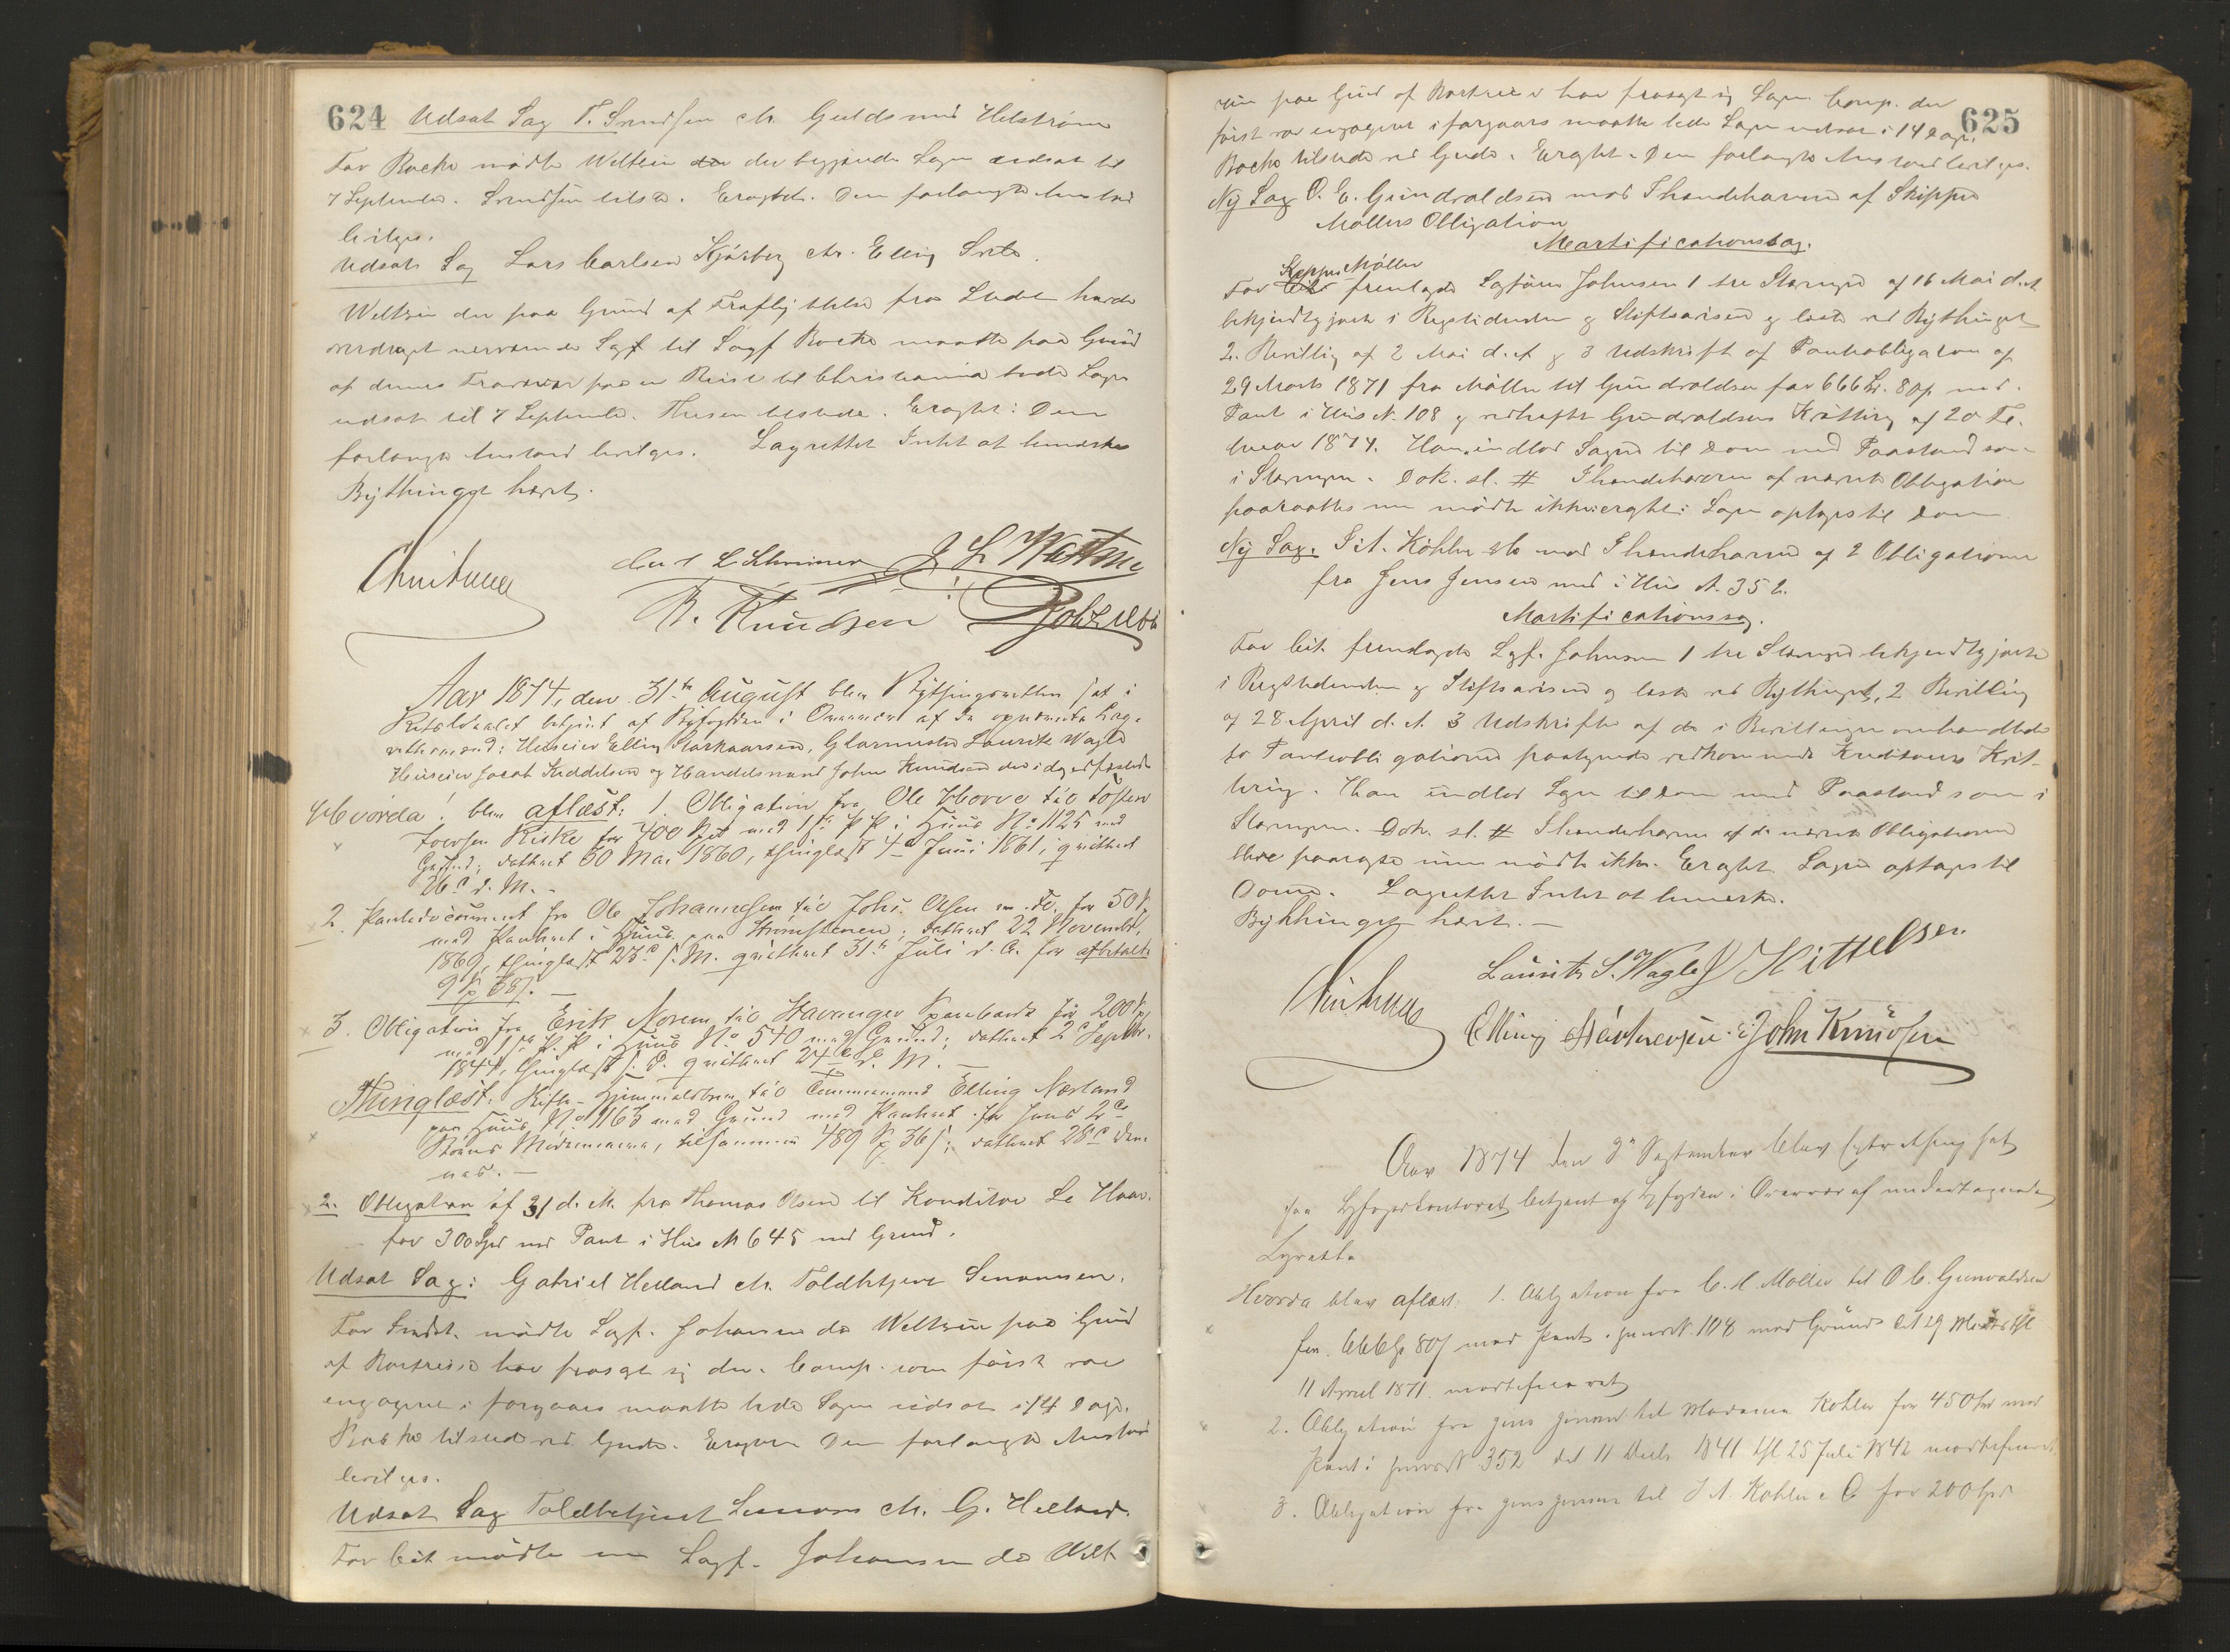 624 Udsat Sag T. Svendsen ctr. Guldsmed Helstrøm
For Bache mødte Weltzin der begjærede Sagen udsat til
7 September. Svendsen tilst. Eragtet. Den forlangte Anstand
bevilges.
Udsat Sag Lars Carlsen Kjosberg ctr. Elling
Weltzin der paa Grund af Fraflyttelse fra Stedet havde
overdraget nærværende Sag til Sagf Bache maatte paa Grund
af dennes Fravær paa en Reise til Christiania bede Sagen
udsat til 7 September. tilstede. Eragtet: Den
forlangte Anstand bevilges. Lagrettet Intet at bemærke
Bythinget hævet.
J L
R. Knudsen
Aar 1874, den 31te August blev Bythingsretten sat i
Retslokalet betjent af Byfogden i Overvær af de opnævnte Lag-
rettesmænd: Huseier Elling, Glarmester Lauritz Wagle
Huseier Jacob Kiddelsen og Handelsmand John Knudsen
Hvorda: blev aflæst: 1. Obligation fra Ole til Tosten
for 400 med 1ste P P i Huus No 1125 med
Grund; dateret 30 Mai 1860, thinglæst Juni 1861, qvitteret
26de d. M. -
2. Pantedocument fra Ole Johannesen til Johs. Olsen for 50
med Panteret i Huus paa Strømstenen; dateret 22 November
1869, thinglæst s. M. qvitteret 31te Juli d. A. for afbetalt
9
3. Obligation fra Erik Norem til Stavanger Sparebank for 200
med 1ste P. P i Huus No 540 med Grund; dateret 2de Septbr.
1844, thinglæst s. D. qvitteret 24de d. M. -
Thinglæst: Skifte-Hjemmelsbrev til Tømmermand Elling Nærland
paa Huus No 1163 med Grund med Panteret for hans 2de
Børns Mødrenearv, tilsammen 489 36; dateret 28de den-
nes. -
2. Obligation af 31 d. M. fra Thomas Olsen til Konditor
for 300 Spd med Pant i Hus N 645 med Grund.
Udsat Sag: Gabriel Helland ctr. Toldbetjent Simonsen.
For mødte Sagf. Johnsen da Weltzin paa Grund
af Bortreise har frasagt sig den. Comp. som først var
engageret i forgaars maatte bede Sagen udsat i 14 Dage.
Bache tilstede ved Gjeld. Eragtet Den forlangte Anstand
bevilges.
Udsat Sag Toldbetjent ctr. G. Helland.
For Cit mødte nu Sagf. Johnsen da Welt
625
zin paa Grund af Bortreise har frasagt sig Sagen. Comp. der
først var engageret i forgaars maatte bede Sagen udsat i 14 Dage.
Bache tilstede ved Gjeld. Eragtet. Den forlangte Anstand bevilges.
Ny Sag O. E. Gundvaldsen mod Ihændehaveren af Skipper
Møllers Obligation
Mortificationssag.
Møller
For Cit fremlagde Sagfører Johnsen 1 tre Stævninger af 16 Mai d. A
bekjendtgjort i Rigstidenden og Stiftsavisen og læst ved Bythinget
2. Bevilling af 2 Mai d. A og 3 Udskrift af Panteobligation af
29 Marts 1871 fra Møller til Gundvaldsen for 666 80 med
Pant i Hus N. 108 og vedhæftet Gundvaldsens Kvittering af 20 Fe-
bruar 1874. Han indlod Sagen til Dom med Paastand som
i Stævningen. Dok. sl. # Ihændehaveren af nævnte Obligation
paaraabtes men mødte ikke. eragtet: Sagen optages til Dom
Ny Sag. J. A. Køhler & Co mod Ihændehaveren af 2 Obligationer
fra Jens Jensen med i Hus N. 352.
Mortificationssag.
For Cit. fremlagde Sagf. Johnsen 1 tre Stævninger bekjendtgjort
i Rigstidenden og Stiftsavisen og læst ved Bythinget, 2 Bevilling
af 28 April d. A. 3 Udskrifter af de i Bevillingen omhandlede
to Panteobligationer paategnede vedkommende Kreditors Kvit-
tering. Han indlod Sagen til Dom med Paastand som i
Stævningen. Dok. sl. # Ihændehaverne af de nævnte Obligationer
blev paaraabt men mødte ikke. Eragtet Sagen optages til
Doms. Lagrettet Intet at bemærke.
Bythinget hævet. -
Lauritz S. Wagle J Kittelsen
Elling John Knudsen
Aar 1874 den September blev Extrathing sat
paa Byfogedkontoret betjent af Byfogden i Overvær af undertegnede
Lagrette
Hvorda blev aflæst: 1. Obligation fra C. A Møller til O E. Gunvaldsen
for 666 80 med Pant i Huus N. 108 med Grund dat 29 Marts tgl
11 April 1871. mortificeret
2. Obligation fra Jens Jensen til Madame Kohler for 450 Spd med
Pant i Huus N 352 dat 11 Decb 1841 tgl 25 Juli 1842 mortificeret
3. Obligation fra Jens Jensen til J A. Kohler & Co for 200 Spd